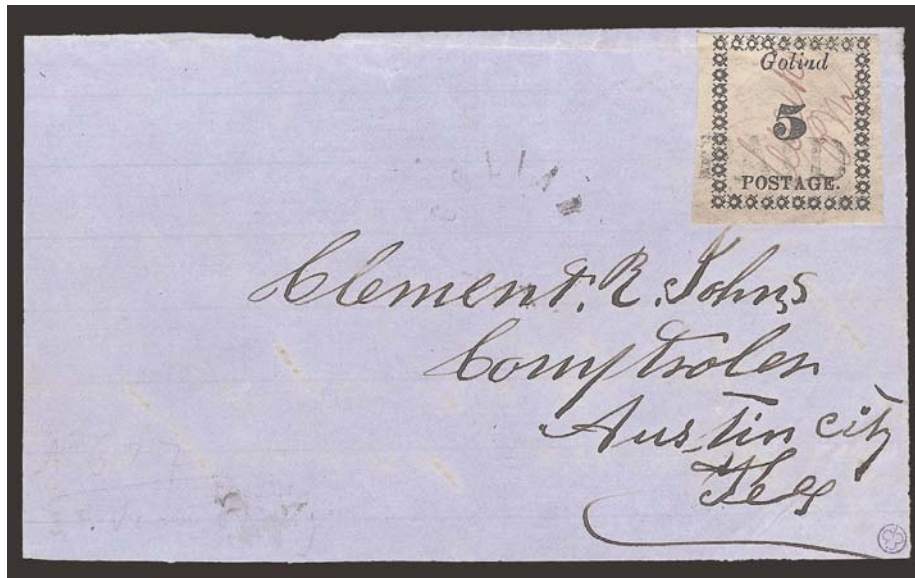 Goliad
5
POSTAGE.
Clement. R. Johns
Comptroler
Austin city
Texs